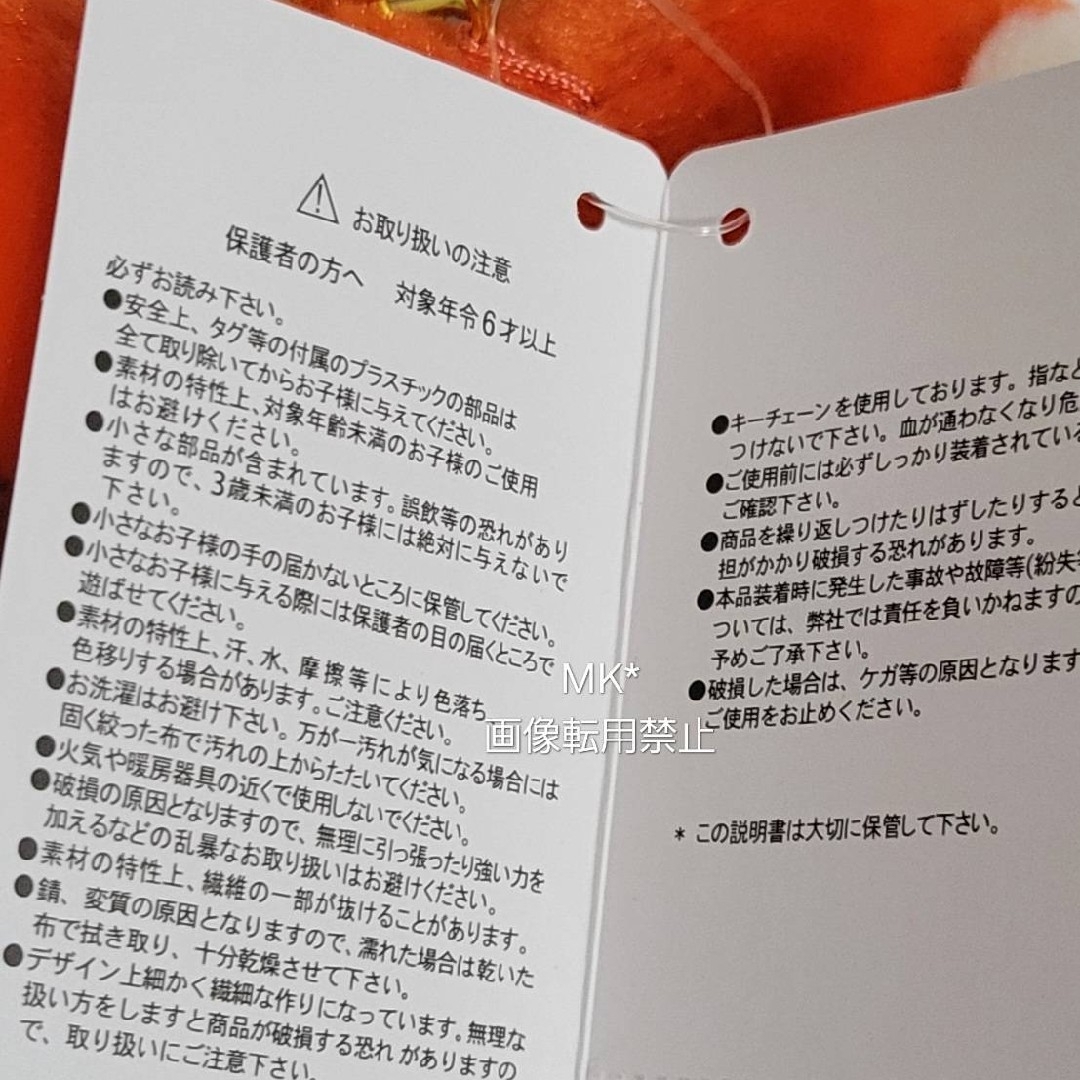 お取り扱いの注意
保護者の方へ 対象年令6才以上
必ずお読み下さい。
●安全上、タグ等の付属のプラスチックの部品は
全て取り除いてからお子様に与えてください。
●素材の特性上、対象年齢未満のお子様のご使用
はお避けください。
●小さな部品が含まれています。誤飲等の恐れがあり
ますので、3歳未満のお子様には絶対に与えないで
下さい。
●小さなお子様の手の届かないところに保管してください。
●小さなお子様に与える際には保護者の目の届くところで
遊ばせてください。
●素材の特性上、汗、水、摩擦等により色落ち
色移りする場合があります。ご注意ください。
●お洗濯はお避け下さい。万が一汚れが気になる場合には
固く絞った布で汚れの上からたたいてください。
●火気や暖房器具の近くで使用しないでください。
●破損の原因となりますので、無理に引っ張ったり強い力を
加えるなどの乱暴なお取り扱いはお避けください。
●素材の特性上、繊維の一部が抜けることがあります。
●錆、変質の原因となりますので、濡れた場合は乾いた
布で拭き取り、十分乾燥させて下さい。
●デザイン上細かく繊細な作りになっています。無理な
扱い方をしますと商品が破損する恐れがありますの
で、取り扱いにご注意下さい。
●キーチェーンを使用しております。指など
つけないで下さい。血が通わなくなり危
●ご使用前には必ずしっかり装着されている
ご確認下さい。
●商品を繰り返しつけたりはずしたりすると
担がかかり破損する恐れがあります。
●本品装着時に発生した事故や故障等(紛失等
ついては、弊社では責任を負いかねますの
予めご了承下さい。
●破損した場合は、ケガ等の原因となります
ご使用をお止めください。
* この説明書は大切に保管して下さい。
MK*
画像転用禁止